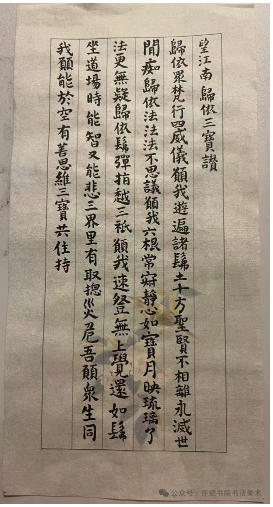 望江南 歸依三寶讃
歸依眾梵行四威儀願我遊遍諸髴土十方聖賢不相離永滅世
間痴歸依法法法不思議願我六根常寂靜心如寶月映琉璃了
法更無疑歸依髴彈指越三祇願我速登無上覺還如髴
坐道場時能智又能悲三界里有取揔災危吾願眾生同
我願能於空有善思維三寶共住持
公众号:书院书法美术